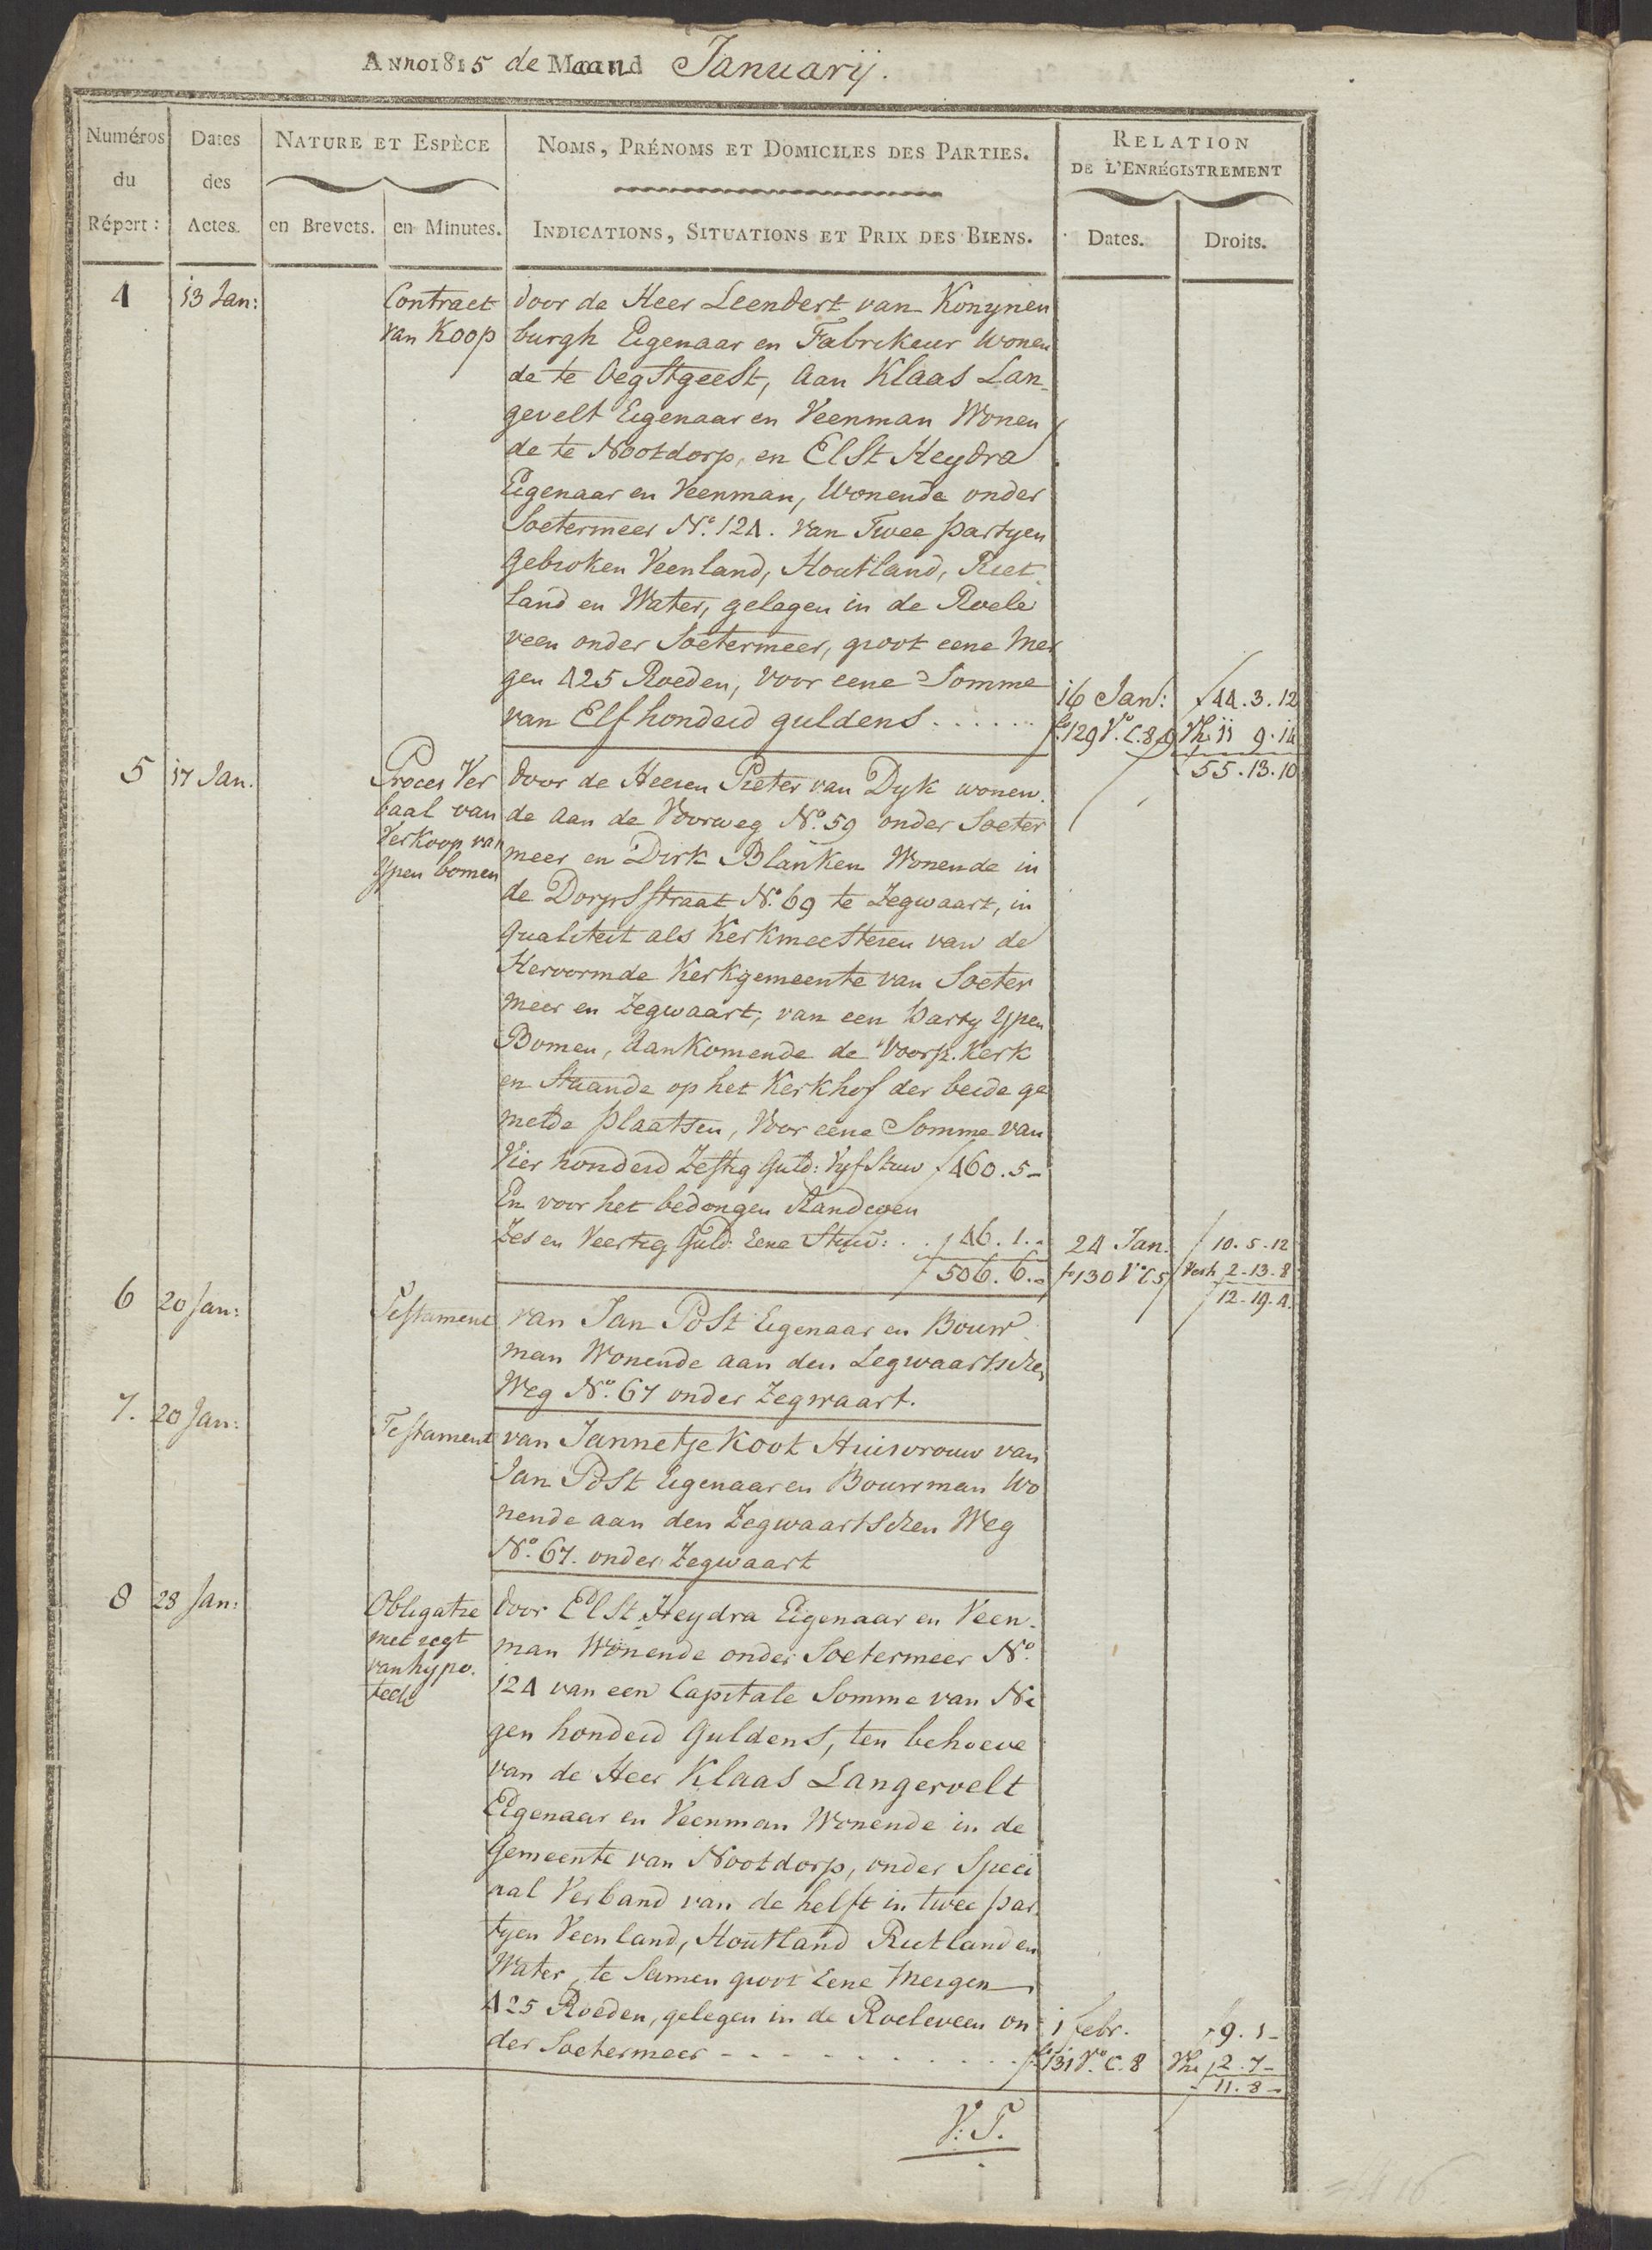 ANNO 1815 de Maand Januarij.
Numéros du Répert:
Dates des Actes.
NATURE ET ESPÈCE
en Brevets.
en Minutes.
NOMS, PRÉNOMS ET DOMICILES DES PARTIES.
INDICATIONS, SITUATIONS ET PRIX DES BIENS.
RELATION
DE L'ENRÉGISTREMENT
Dates.
Droits.
4
13 Jan:
Contract
van Koop
door de Heer Leendert van Konynen
burgh Eigenaar en Fabrikeur Wonen
de te Oegstgeest, aan Klaas Lan-
gevelt Eigenaar en Veenman Wonen
de te Nootdorp, en Elst Heydra
Eigenaar en Veenman, Wonende onder
Soetermeer No. 124. van Twee partyen
gebroken Veenland, Houtland, Riet
land en Water, gelegen in de Roele
veen onder Soetermeer, groot eene Mer
gen 425 Roeden, voor eene Somme
van Elfhonderd guldens . . . . . .
16 Jan:
fo 129 Vo. C. 8
f 44. 3. 12
Vh. 11 9. 14
55. 13. 10
5
17 Jan.
Proces Ver
baal van
Verkoop van
Ypen bomen
door de Heeren Pieter van Dyk wonen.
de aan de Voorweg No. 59 onder Soeter
meer en Dirk Blanken Wonende in
de Dorpsstraat No. 69 te Zegwaart, in
qualiteit als Kerkmeesteren van de
Hervormde Kerkgemeente van Soeter
meer en Zegwaart, van een party Ypen
Bomen, aankomende de voorsz. Kerk
en Staande op het Kerkhof der beide ge
melde plaatsen, voor eene Somme van
Vier honderd Zestig Guld: Vyf Stuiv f 460. 5 -
En voor het bedongen Randcoen
Zes en Veertig Guld: Eene Stuiv: . . f 46. 1. -
f 506. 6. -
24 Jan.
fo 130 Vo C. 5
f 10. 5. 12
Verh 2. 13. 8
12. 19. 4.
6
20 Jan:
Testament
van Jan Post Eigenaar en Bouw
man Wonende aan den Zegwaartschen
Weg No. 67 onder Zegwaart.
7.
20 Jan:
Testament
van Jannetje Koot Huisvrouw van
Jan Post Eigenaar en Bouwman Wo
nende aan den Zegwaartschen Weg
No. 67. onder Zegwaart
8
28 Jan:
Obligatie
met regt
van hypo.
teek
door Elst Heydra Eigenaar en Veen-
man Wonende onder Soetermeer No.
124 van een Capitale Somme van Ne
gen honderd Guldens, ten behoeve
van de Heer Klaas Langervelt
Eigenaar en Veenman Wonende in de
Gemeente van Nootdorp, onder Speci
aal Verband van de helft in twee par
tyen Veenland, Houtland Rietland en
Water, te Samen groot Eene Mergen
425 Roeden, gelegen in de Roeleveen on
der Soetermeer - - - - - - - - -
1 febr.
fo 131 Vo. C. 8
f 9. 1 -
Vh. f 2. 7 -
11. 8 -
V: T.